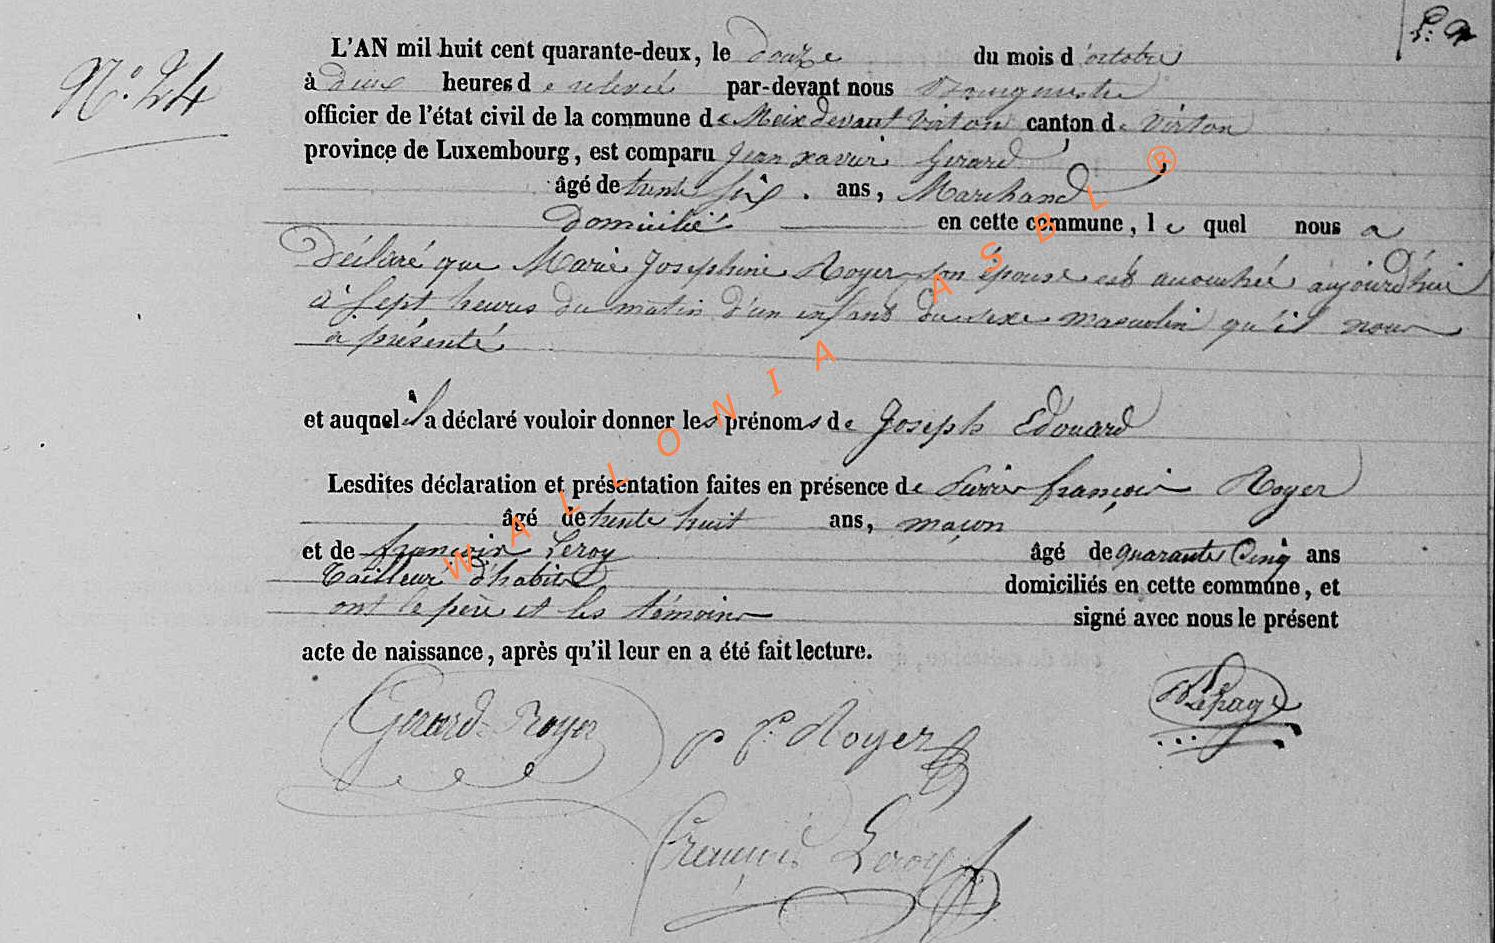 N.° 24
L'AN mil huit cent quarante-deux, le douze du mois d'octobre
à deux heures de relevée par-devant nous Bourgmestre
officier de l'état civil de la commune de Meix devant Virton canton de Virton
province de Luxembourg, est comparu Jean Xavier Gerard,
âgé de trente six ans, Marchand,
Domicilié en cette commune, le quel nous a
Déclaré que Marie Josephine Royer son épouse est accouchée aujourd'hui
à Sept heures du matin d'un enfant du sexe masculin qu'il nous
a présenté
et auquel il a déclaré vouloir donner les prénoms de Joseph Edouard
Lesdites déclaration et présentation faites en présence de Pierre françois Royer
âgé de trente huit ans, maçon
et de françois Leroy âgé de quarante Cinq ans
Tailleur d'habits domiciliés en cette commune, et
ont le père et les témoins signé avec nous le présent
acte de naissance, après qu'il leur en a été fait lecture.
Gerard-Royer
p f. Royer
Lepage
François Leroy
WALLONIA ASBL ®